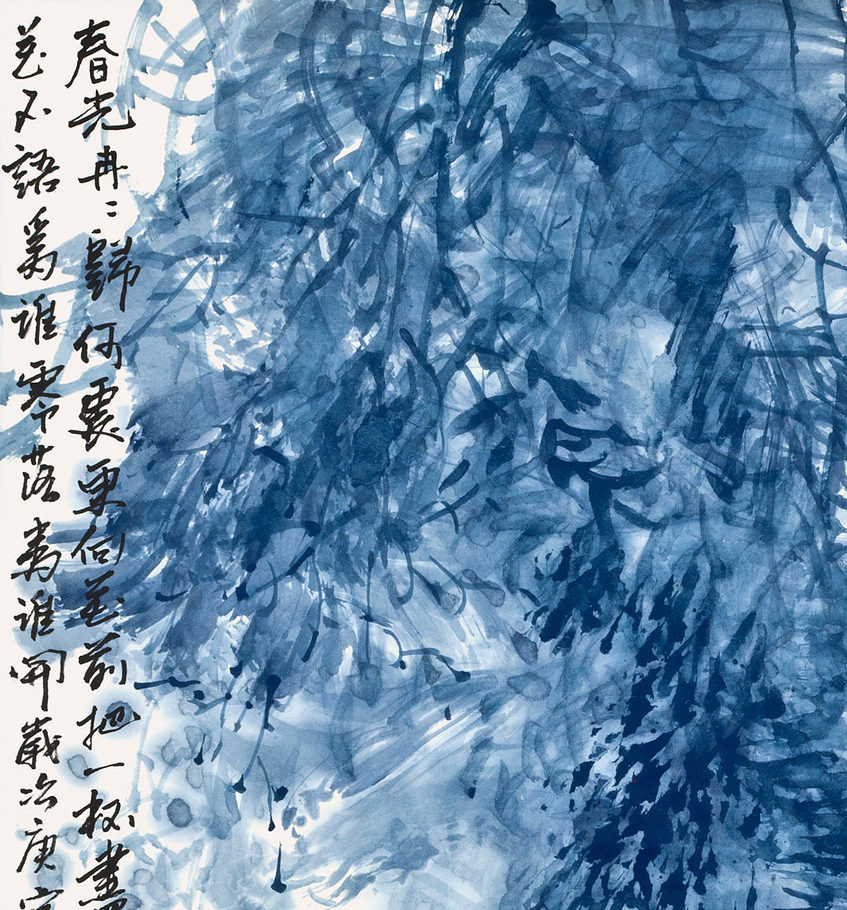 春光冉〻歸何處更向花前把一杯盡
花不語為誰零落為誰開歲次庚